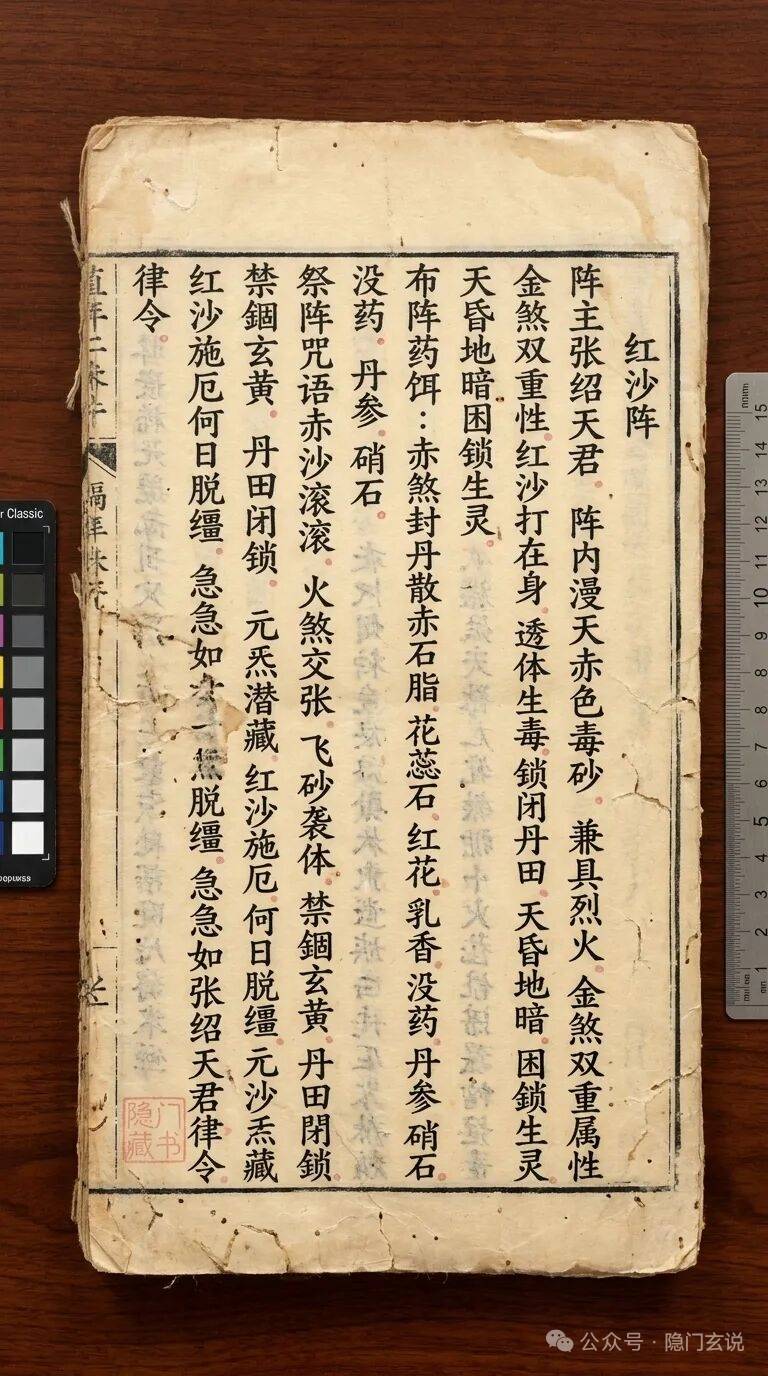 红沙阵
阵主张绍天君。阵内漫天赤色毒砂。兼具烈火。金煞双重属性
金煞双重性。红沙打在身。透体生毒。锁闭丹田。天昏地暗。困鎖生灵。
天昏地暗困锁生灵。
布阵药饵：赤煞封丹散赤石脂。花蕊石。红花。乳香。没药。丹参。硝石。
没药。丹参。硝石。
祭阵咒语赤沙滚滚。火煞交张。飞砂袭体。禁錮玄黄。丹田閉鎖。
禁錮玄黄。丹田闭锁。元炁潜藏。红沙施厄。何日脱缰。元沙炁藏
红沙施厄何日脱缰。急急如 脱缰。急急如张绍天君律令。
律令。
隐门
藏书
r Classic
popuxss
mm
15
14
13
12
11
10
9
8
7
6
5
4
3
2
1
公众号·隐门玄说